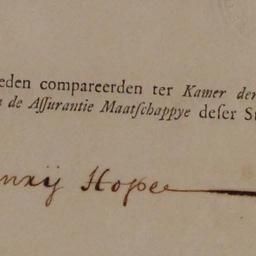 eden compareerden ter Kamer der
de Aſſurantie Maatſchappye deſer S
nrij Hope